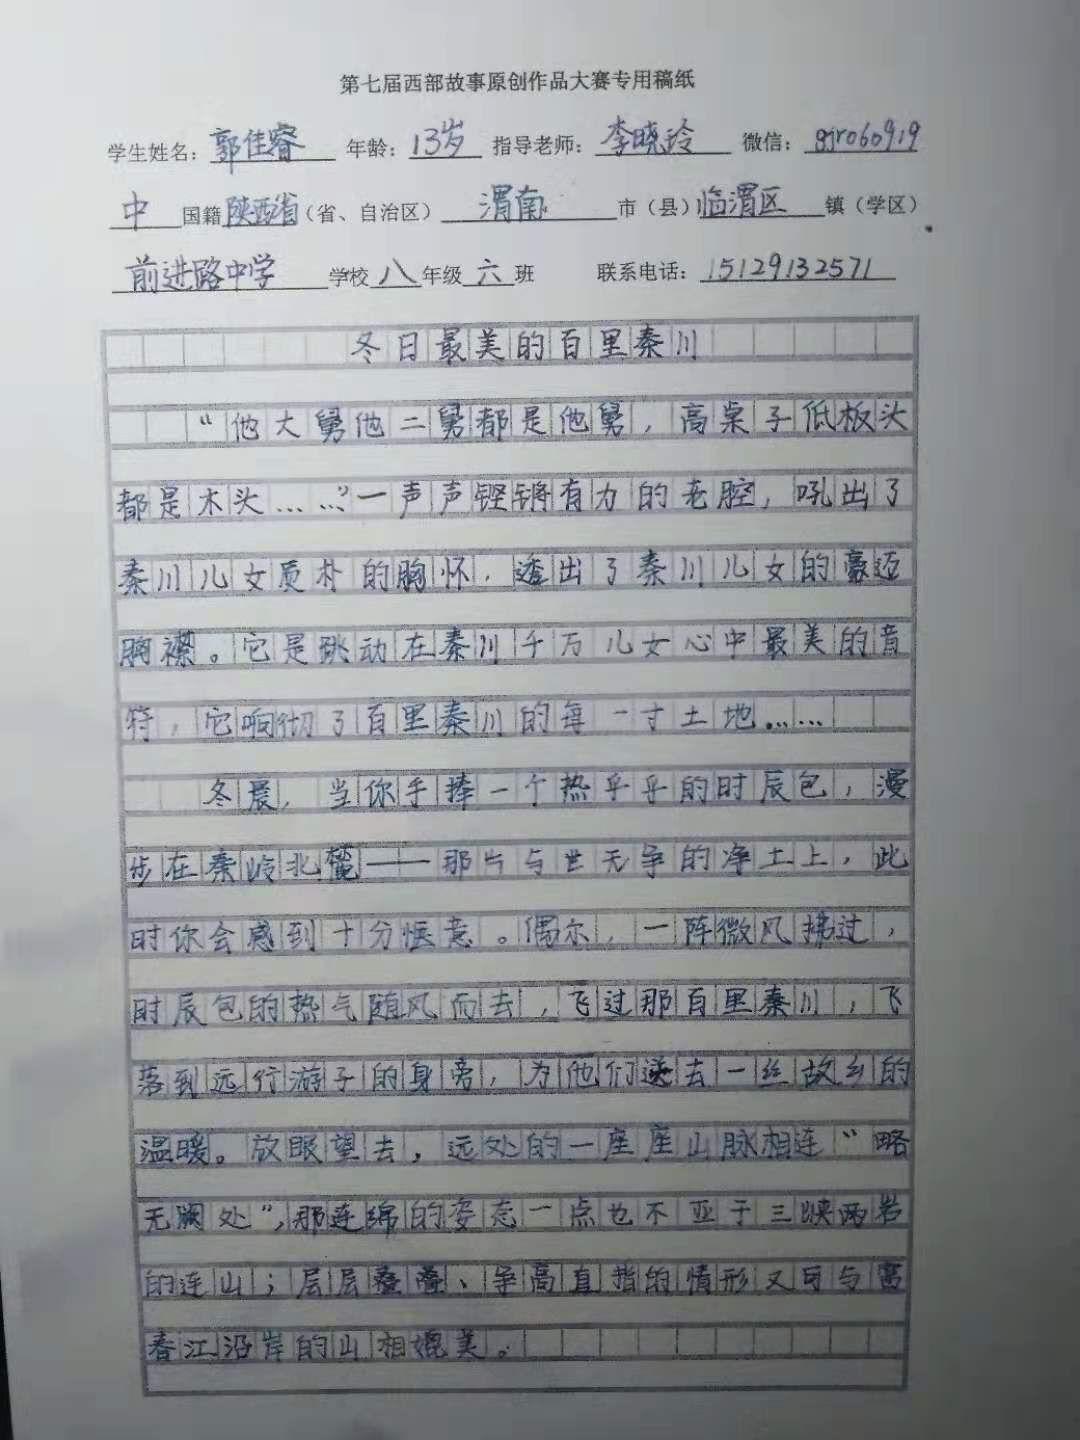 第七届西部故事原创作品大赛专用稿纸
学生姓名：郭佳睿 年龄：13岁 指导老师：李晓玲 微信：gjr060919
中 国籍 陕西省（省、自治区） 渭南 市（县）临渭区 镇（学区）
前进路中学 学校 八 年级 六 班 联系电话：15129132571
冬日最美的百里秦川
“他大舅他二舅都是他舅，高桌子低板头
都是木头……”一声声铿锵有力的老腔，吼出了
秦川儿女质朴的胸怀，透出了秦川儿女的豪迈
胸襟。它是跳动在秦川千万儿女心中最美的音
符，它响彻了百里秦川的每一寸土地……
冬晨，当你手捧一个热乎乎的时辰包，漫
步在秦岭北麓——那片与世无争的净土上，此
时你会感到十分惬意。偶尔，一阵微风拂过，
时辰包的热气随风而去，飞过那百里秦川，飞
落到远行游子的身旁，为他们送去一丝故乡的
温暖。放眼望去，远处的一座座山脉相连“略
无阙处”，那连绵的姿态一点也不亚于三峡两岩
的连山；层层叠叠、争高直指的情形又可与富
春江沿岸的山相媲美。